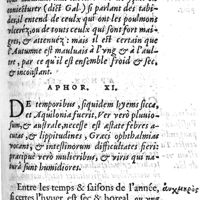 coniecturer (dict Gal.) si parlant des tabi-
des, il entend de ceulx qui ont les poulmons
vlcerez, ou de tous ceulx qui sont fort mai-
gres, & attenuez: mais il est certain que
l'Autumne est mauluais à l'vng & à l'aul-
tre, par ce qu'il est ensemble froid & sec,
& inconstant.
APHOR. XI.
DE temporibus, siquidem hyems sicca,
& Aquilonia fuerit, Ver verò pluuio-
sum, & australe, necesse est æstate febres a-
cutas, & lippitudines, Græci ophthalmias
vocant, & intestinorum difficultates fieri:
præcipuè verò mulieribus, & viris qui na-
tura sunt humidiores.
Entre les temps & saisons de l'année,
si certes l'hyuer est sec & boreal, ou